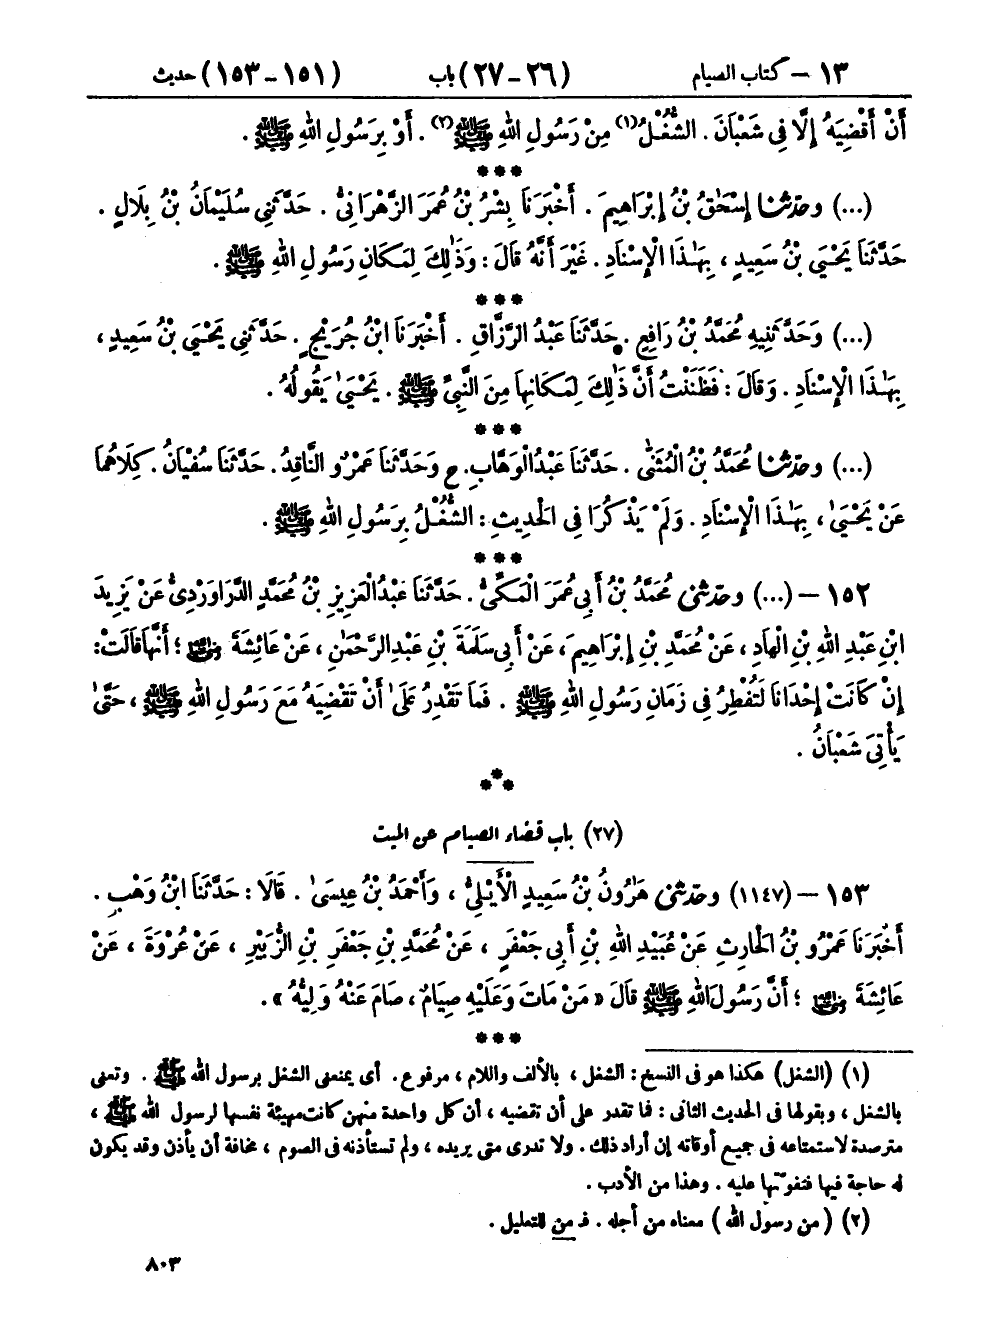 ١٣ – كتاب الصيام (٢٦ – ٢٧) باب (١٥١ – ١٥٣) حديث
أَنْ أَقْضِيَهُ إِلَّا فِي شَعْبَانَ . الشُّغُلُ(١) مِنْ رَسُولِ اللهِ ﷺ(٢) . أَوْ بِرَسُولِ اللهِ ﷺ .
***
(...) وحَدَّثَنَا إِسْحَٰقُ بْنُ إِبْرَاهِيمَ . أَخْبَرَنَا بِشْرُ بْنُ عُمَرَ الزَّهْرَانِيُّ . حَدَّثَنِي سُلَيْمَانُ بْنُ بِلَالٍ .
حَدَّثَنَا يَحْيَى بْنُ سَعِيدٍ ، بِهَٰذَا الْإِسْنَادِ . غَيْرَ أَنَّهُ قَالَ : وَذَٰلِكَ لِمَكَانِ رَسُولِ اللهِ ﷺ .
***
(...) وَحَدَّثَنِيهِ مُحَمَّدُ بْنُ رَافِعٍ . حَدَّثَنَا عَبْدُ الرَّزَّاقِ . أَخْبَرَنَا ابْنُ جُرَيْجٍ . حَدَّثَنِي يَحْيَى بْنُ سَعِيدٍ ،
بِهَٰذَا الْإِسْنَادِ . وَقَالَ : فَظَنَنْتُ أَنَّ ذَٰلِكَ لِمَكَانِهَا مِنَ النَّبِيِّ ﷺ . يَحْيَىٰ يَقُولُهُ .
***
(...) وحَدَّثَنَا مُحَمَّدُ بْنُ الْمُثَنَّىٰ . حَدَّثَنَا عَبْدُ الْوَهَّابِ . ع وَحَدَّثَنَا عَمْرٌو النَّاقِدُ . حَدَّثَنَا سُفْيَانُ . كِلَاهُمَا
عَنْ يَحْيَىٰ ، بِهَٰذَا الْإِسْنَادِ . وَلَمْ يَذْكُرَا فِي الْحَدِيثِ : الشُّغْلُ بِرَسُولِ اللهِ ﷺ .
***
١٥٢ – (...) وحَدَّثَنِي مُحَمَّدُ بْنُ أَبِي عُمَرَ الْمَكِّيُّ . حَدَّثَنَا عَبْدُ الْعَزِيزِ بْنُ مُحَمَّدٍ الدَّرَاوَرْدِيُّ عَنْ يَزِيدَ
ابْنِ عَبْدِ اللهِ بْنِ الْهَادِ ، عَنْ مُحَمَّدِ بْنِ إِبْرَاهِيمَ ، عَنْ أَبِي سَلَمَةَ بْنِ عَبْدِ الرَّحْمَٰنِ ، عَنْ عَائِشَةَ رضي الله عنها ؛ أَنَّهَا قَالَتْ :
إِنْ كَانَتْ إِحْدَانَا لَتُفْطِرُ فِي زَمَانِ رَسُولِ اللهِ ﷺ . فَمَا تَقْدِرُ عَلَىٰ أَنْ تَقْضِيَهُ مَعَ رَسُولِ اللهِ ﷺ ، حَتَّىٰ
يَأْتِيَ شَعْبَانُ .
***
(٢٧) باب قضاء الصيام عن الميت
١٥٣ – (١١٤٧) وحَدَّثَنِي هَارُونُ بْنُ سَعِيدٍ الْأَيْلِيُّ ، وَأَحْمَدُ بْنُ عِيسَىٰ . قَالَا : حَدَّثَنَا ابْنُ وَهْبٍ .
أَخْبَرَنَا عَمْرُو بْنُ الْحَارِثِ عَنْ عُبَيْدِ اللهِ بْنِ أَبِي جَعْفَرٍ ، عَنْ مُحَمَّدِ بْنِ جَعْفَرِ بْنِ الزُّبَيْرِ ، عَنْ عُرْوَةَ ، عَنْ
عَائِشَةَ رضي الله عنها ؛ أَنَّ رَسُولَ اللهِ ﷺ قَالَ « مَنْ مَاتَ وَعَلَيْهِ صِيَامٌ ، صَامَ عَنْهُ وَلِيُّهُ » .
***
(١) (الشغل) هكذا هو في النسخ : الشغل ، بالألف واللام ، مرفوع . أى يمنعنى الشغل برسول الله ﷺ . وتعنى
بالشغل ، وبقولها فى الحديث الثانى : فما تقدر على أن تقضيه ، أن كل واحدة منهن كانت مهيئة نفسها لرسول الله ﷺ ،
مترصدة لاستمتاعه فى جميع أوقاته إن أراد ذلك . ولا تدرى متى يريده ، ولم تستأذنه فى الصوم ، مخافة أن يأذن وقد يكون
له حاجة فيها فتفوتها عليه . وهذا من الأدب .
(٢) (من رسول الله) معناه من أجله . فـ من للتعليل .
٨٠٣